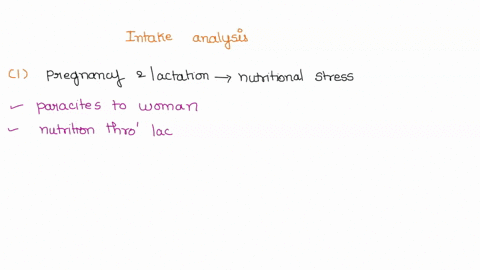 Intake analysis
(1) Pregnancy & lactation → nutritional stress
✓ paracites to woman
✓ nutrition thro' lac